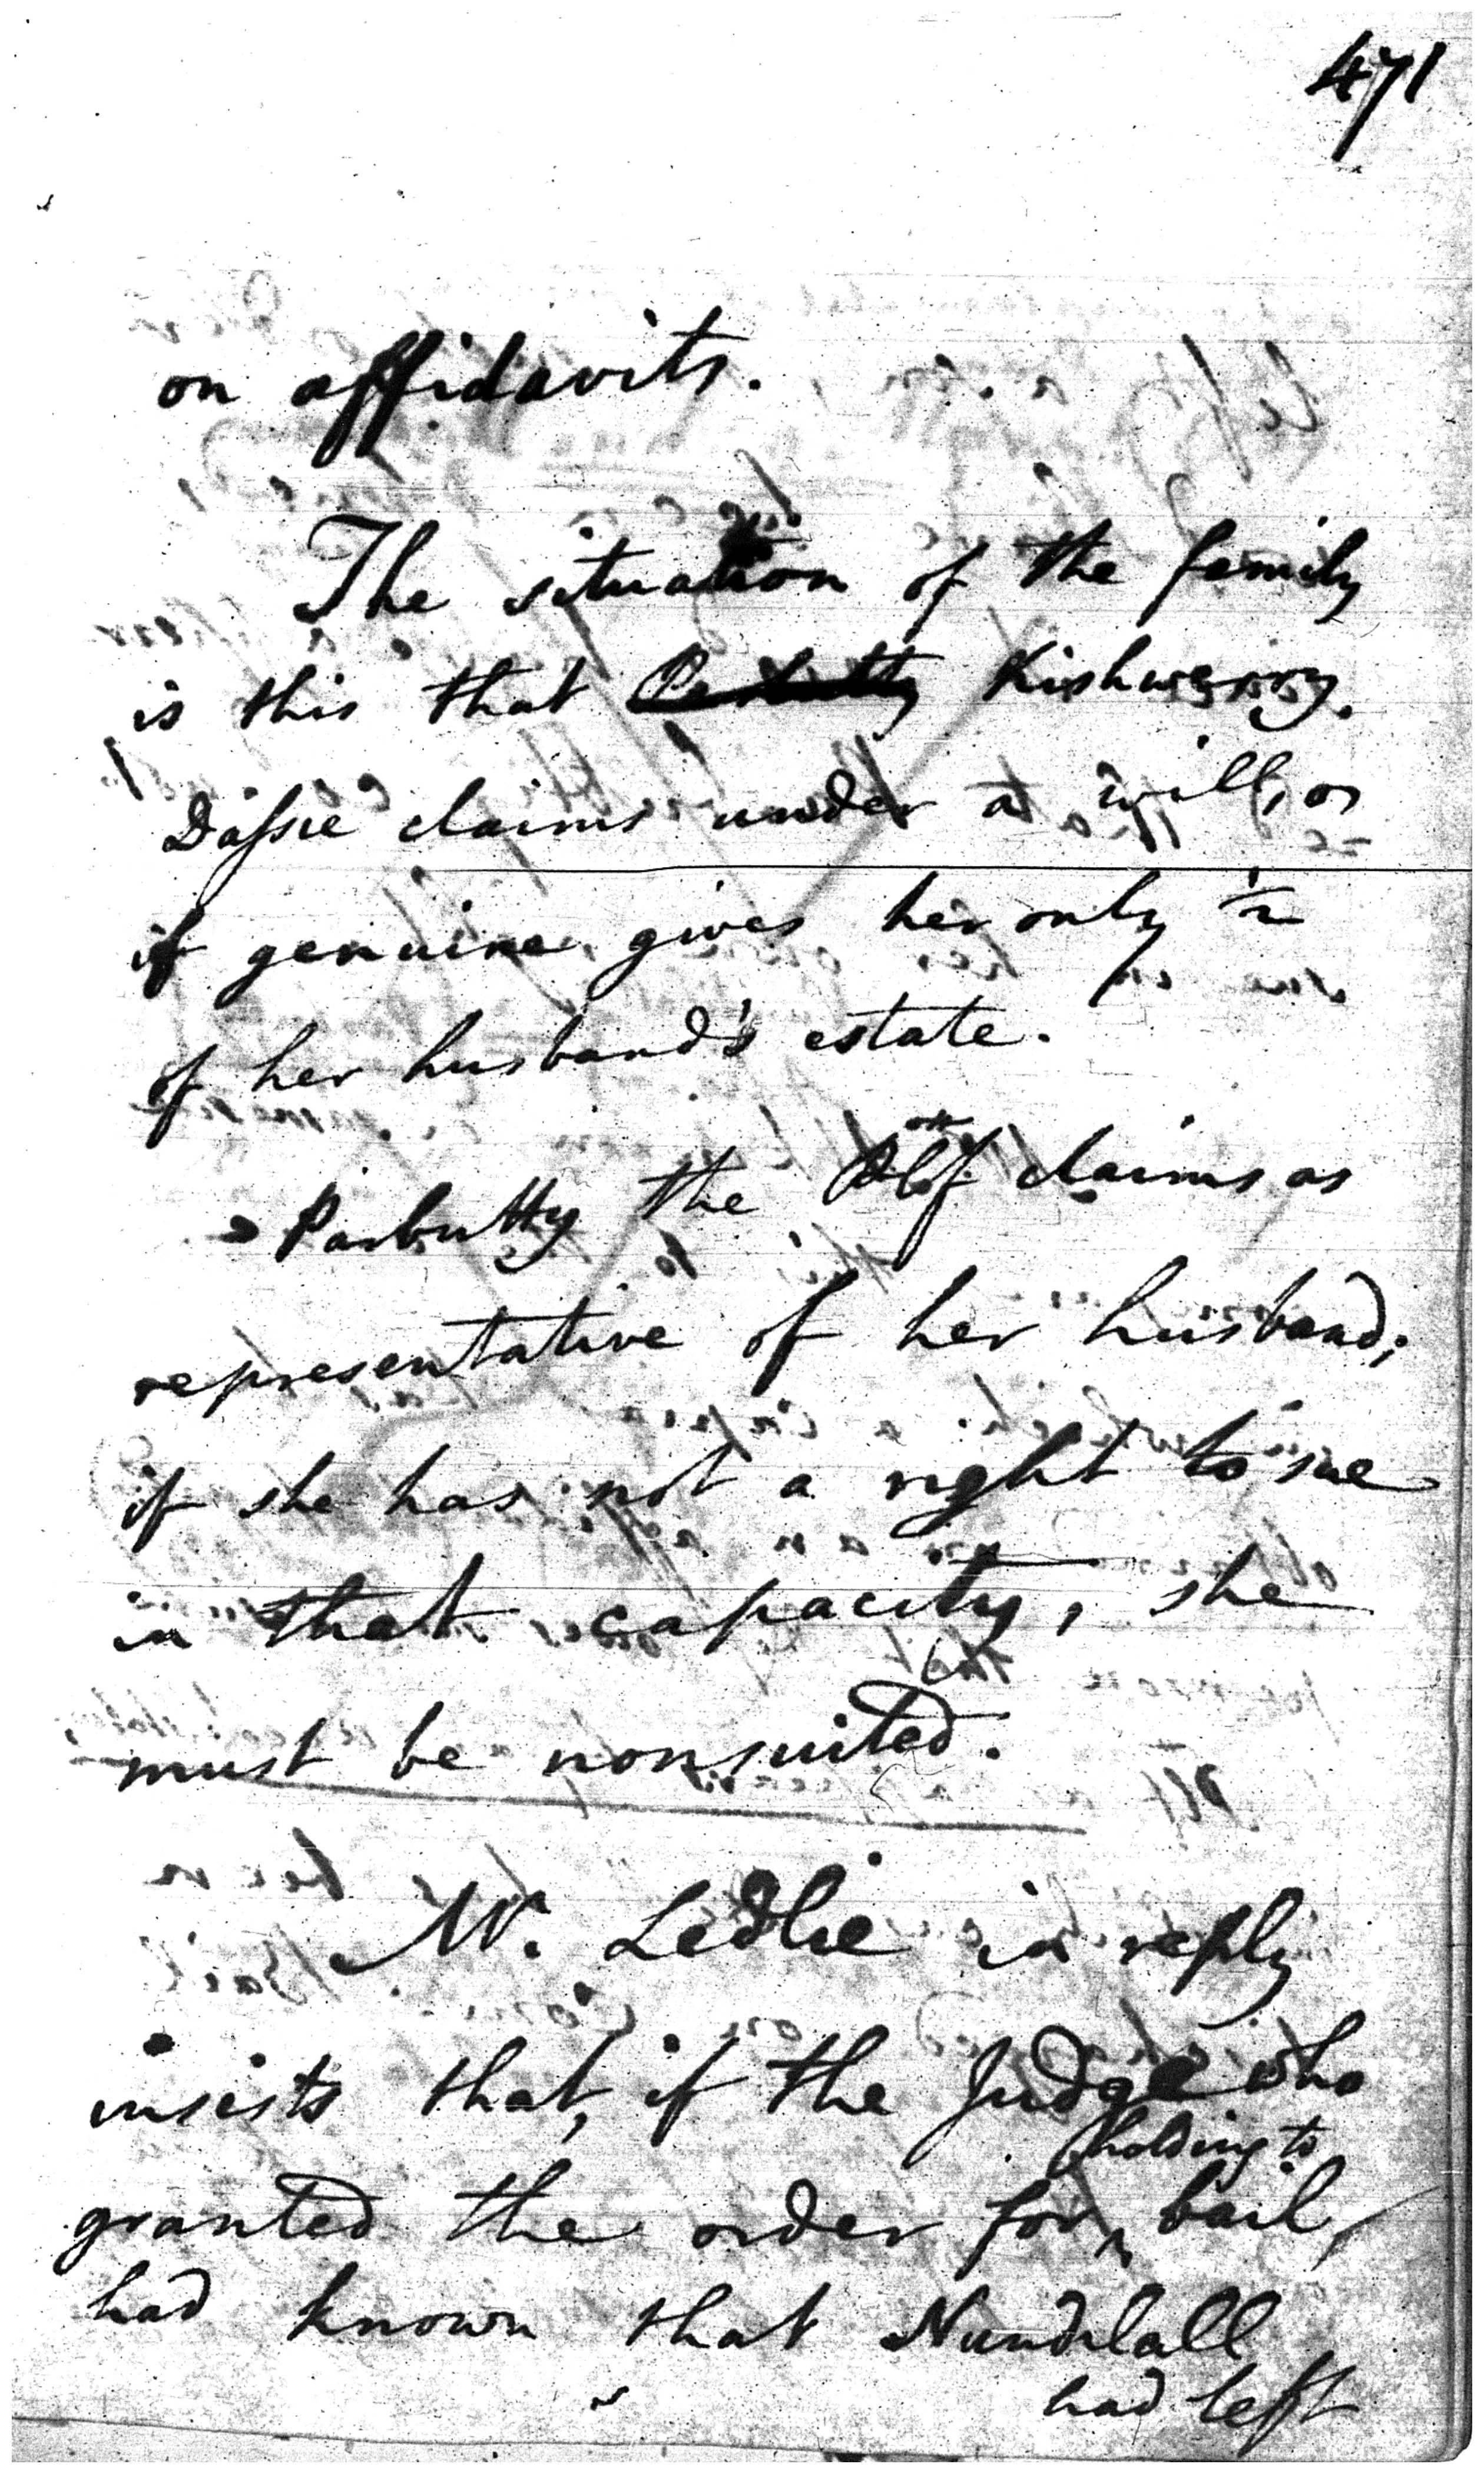 471
on affidavits.
The situation of the family
is this that Parbutty Kishwerry.
Dassie claims under a will, or
if genuine gives her only 1/2
of her husband's estate.
Parbutty the Plff claims as
representative of her husband;
if she has not a right to sue
in that capacity, she
must be nonsuited.
Mr. Ledlie in reply
insists that, if the Judge who
holding to
granted the order for bail,
had known that Nundlall
had left